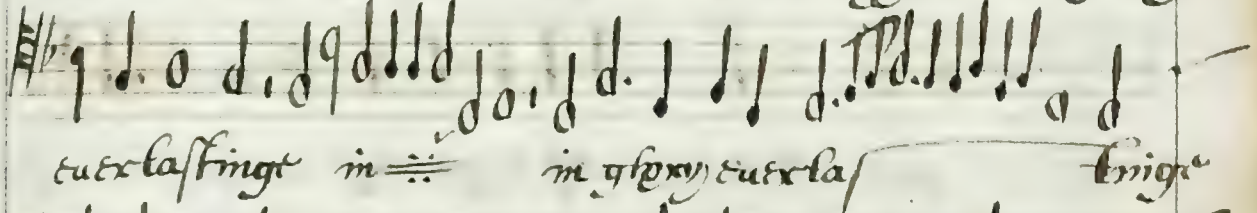 euerlastinge in in glory euerlas tinge